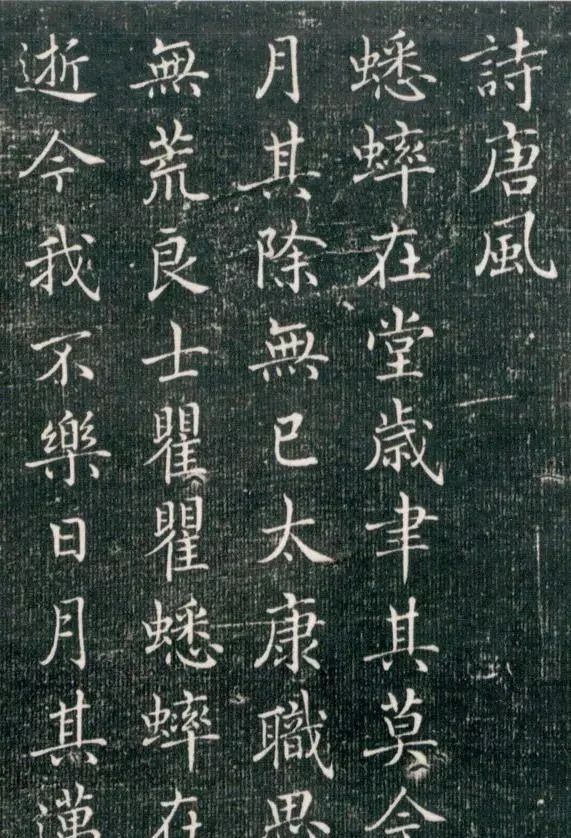 詩唐風
蟋蟀在堂歲聿其莫今
月其除無已太康職思
無荒良士瞿瞿蟋蟀在
逝今我不樂日月其邁